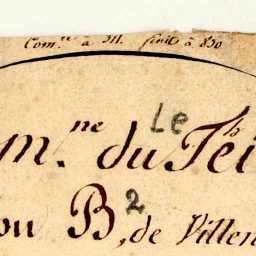 Com.ne à M. finit à 830
Le
m.ne du Teih
ou B 2, de Villen